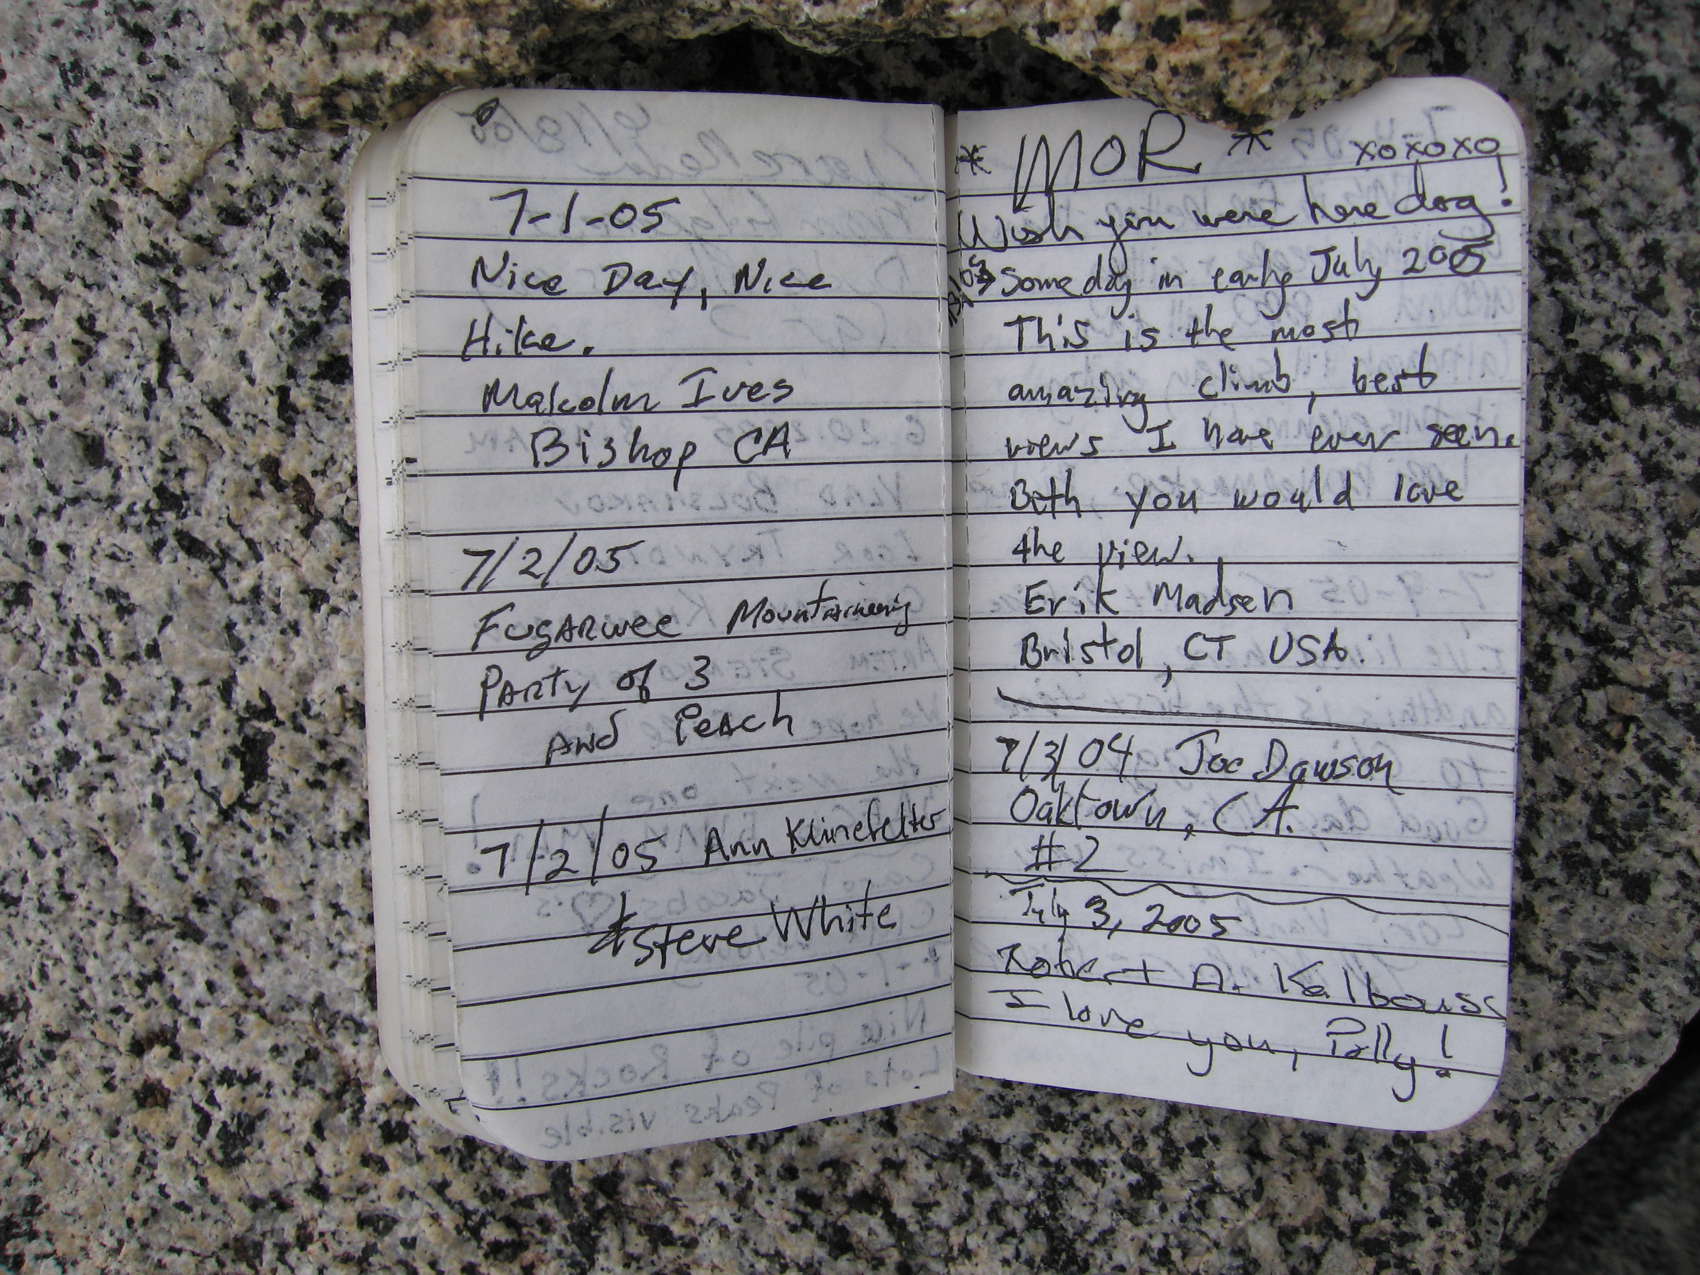 7-1-05
Nice Day, Nice
Hike.
Malcolm Ives
Bishop CA
7/2/05
Fugarwee Mountaineering
Party of 3
and Peach
7/2/05 Ann Klinefelter
& Steve White
* MOR * xoxoxo
Wish you were here dog!
Someday in early July 2005
This is the most
amazing climb, best
views I have ever seen.
Beth you would love
the view.
Erik Madsen
Bristol, CT USA.
7/3/04 Joe Dawson
Oaktown, CA.
#2
July 3, 2005
Robert A. Kalbouss
I love you, Polly!